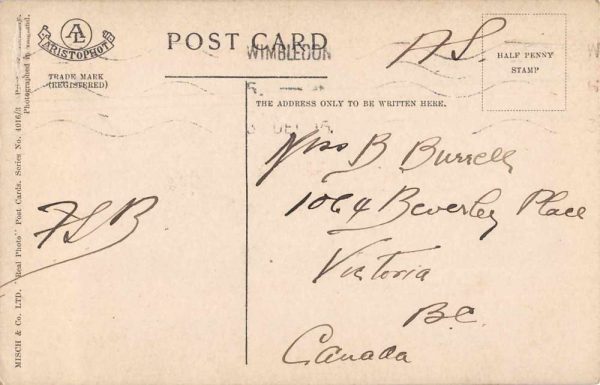 AL
ARISTOPHOT
TRADE MARK
(REGISTERED)
POST CARD
WIMBLEDON
A.S.
HALF PENNY
STAMP
THE ADDRESS ONLY TO BE WRITTEN HERE.
Miss B. Burrell
1064 Beverley Place
Victoria
B.C.
Canada
FLB
MISCH & Co. LTD. "Real Photo" Post Cards. Series No. 4016/3
Photographed in